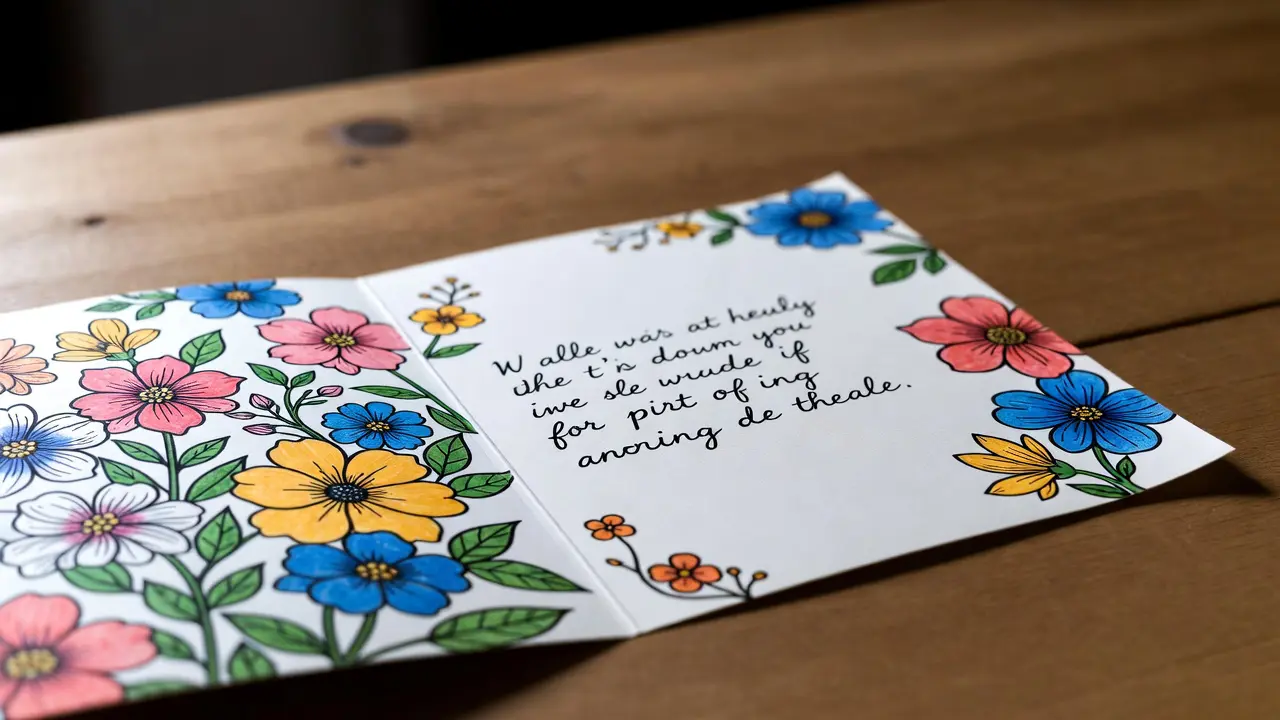 W alle was at heuly
ithe t's doum you
inve sle wrude if
for pirt of ing
anoring de theale.